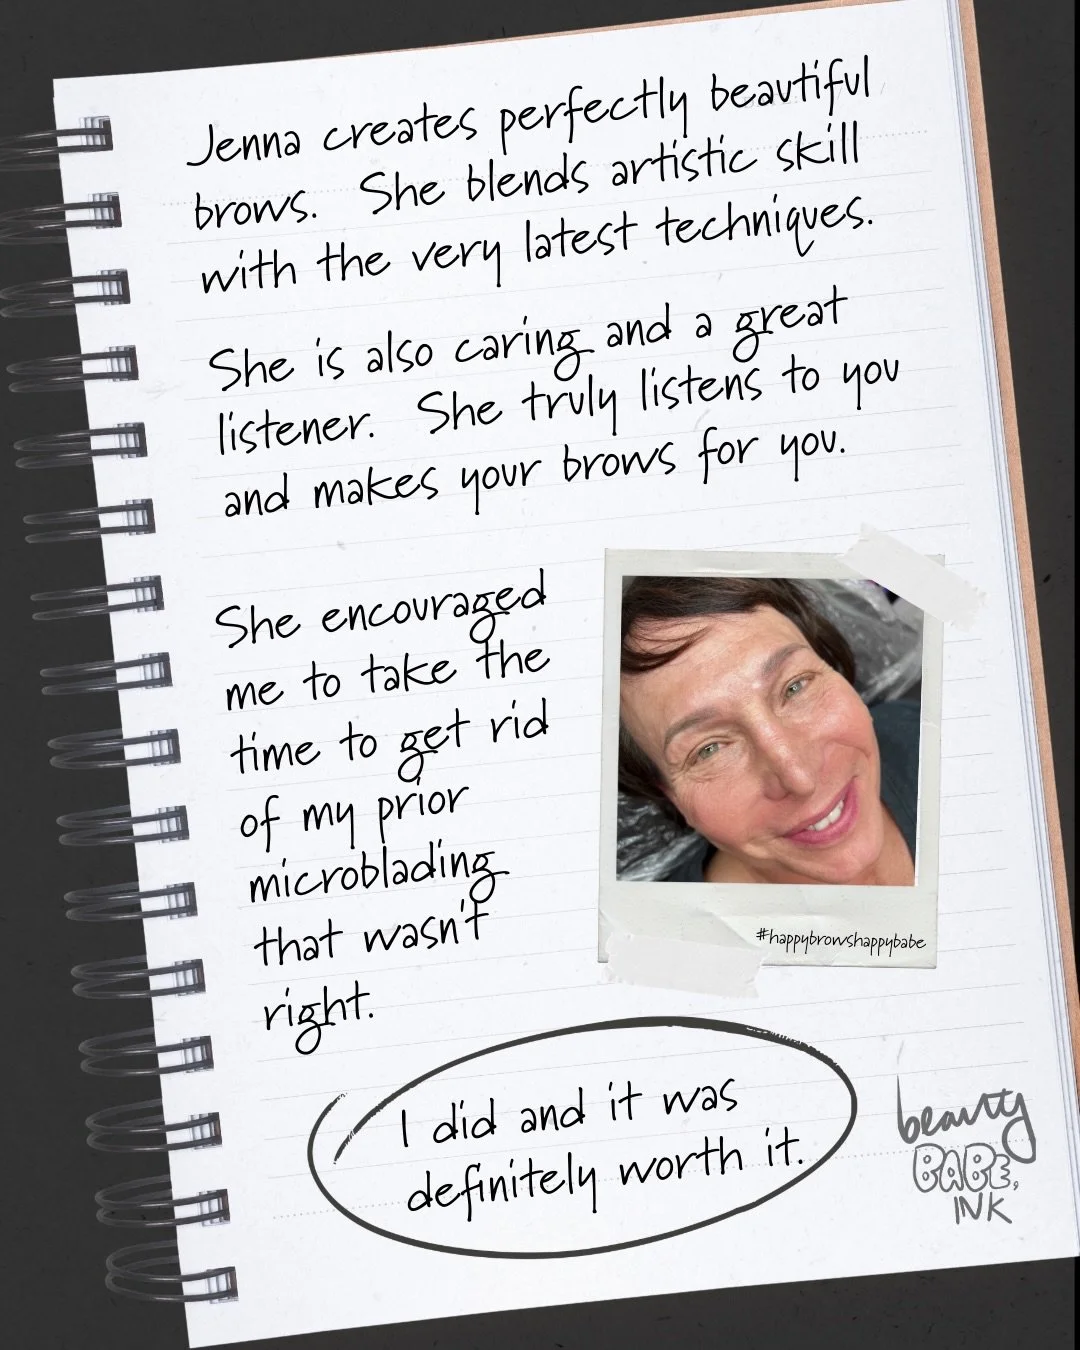 Jenna creates perfectly beautiful
brows. She blends artistic skill
with the very latest techniques.
She is also caring and a great
listener. She truly listens to you
and makes your brows for you.
She encouraged
me to take the
time to get rid
of my prior
microblading
that wasn't
right.
#happybrowshappybabe
I did and it was
definitely worth it.
beauty
BABE,
INK